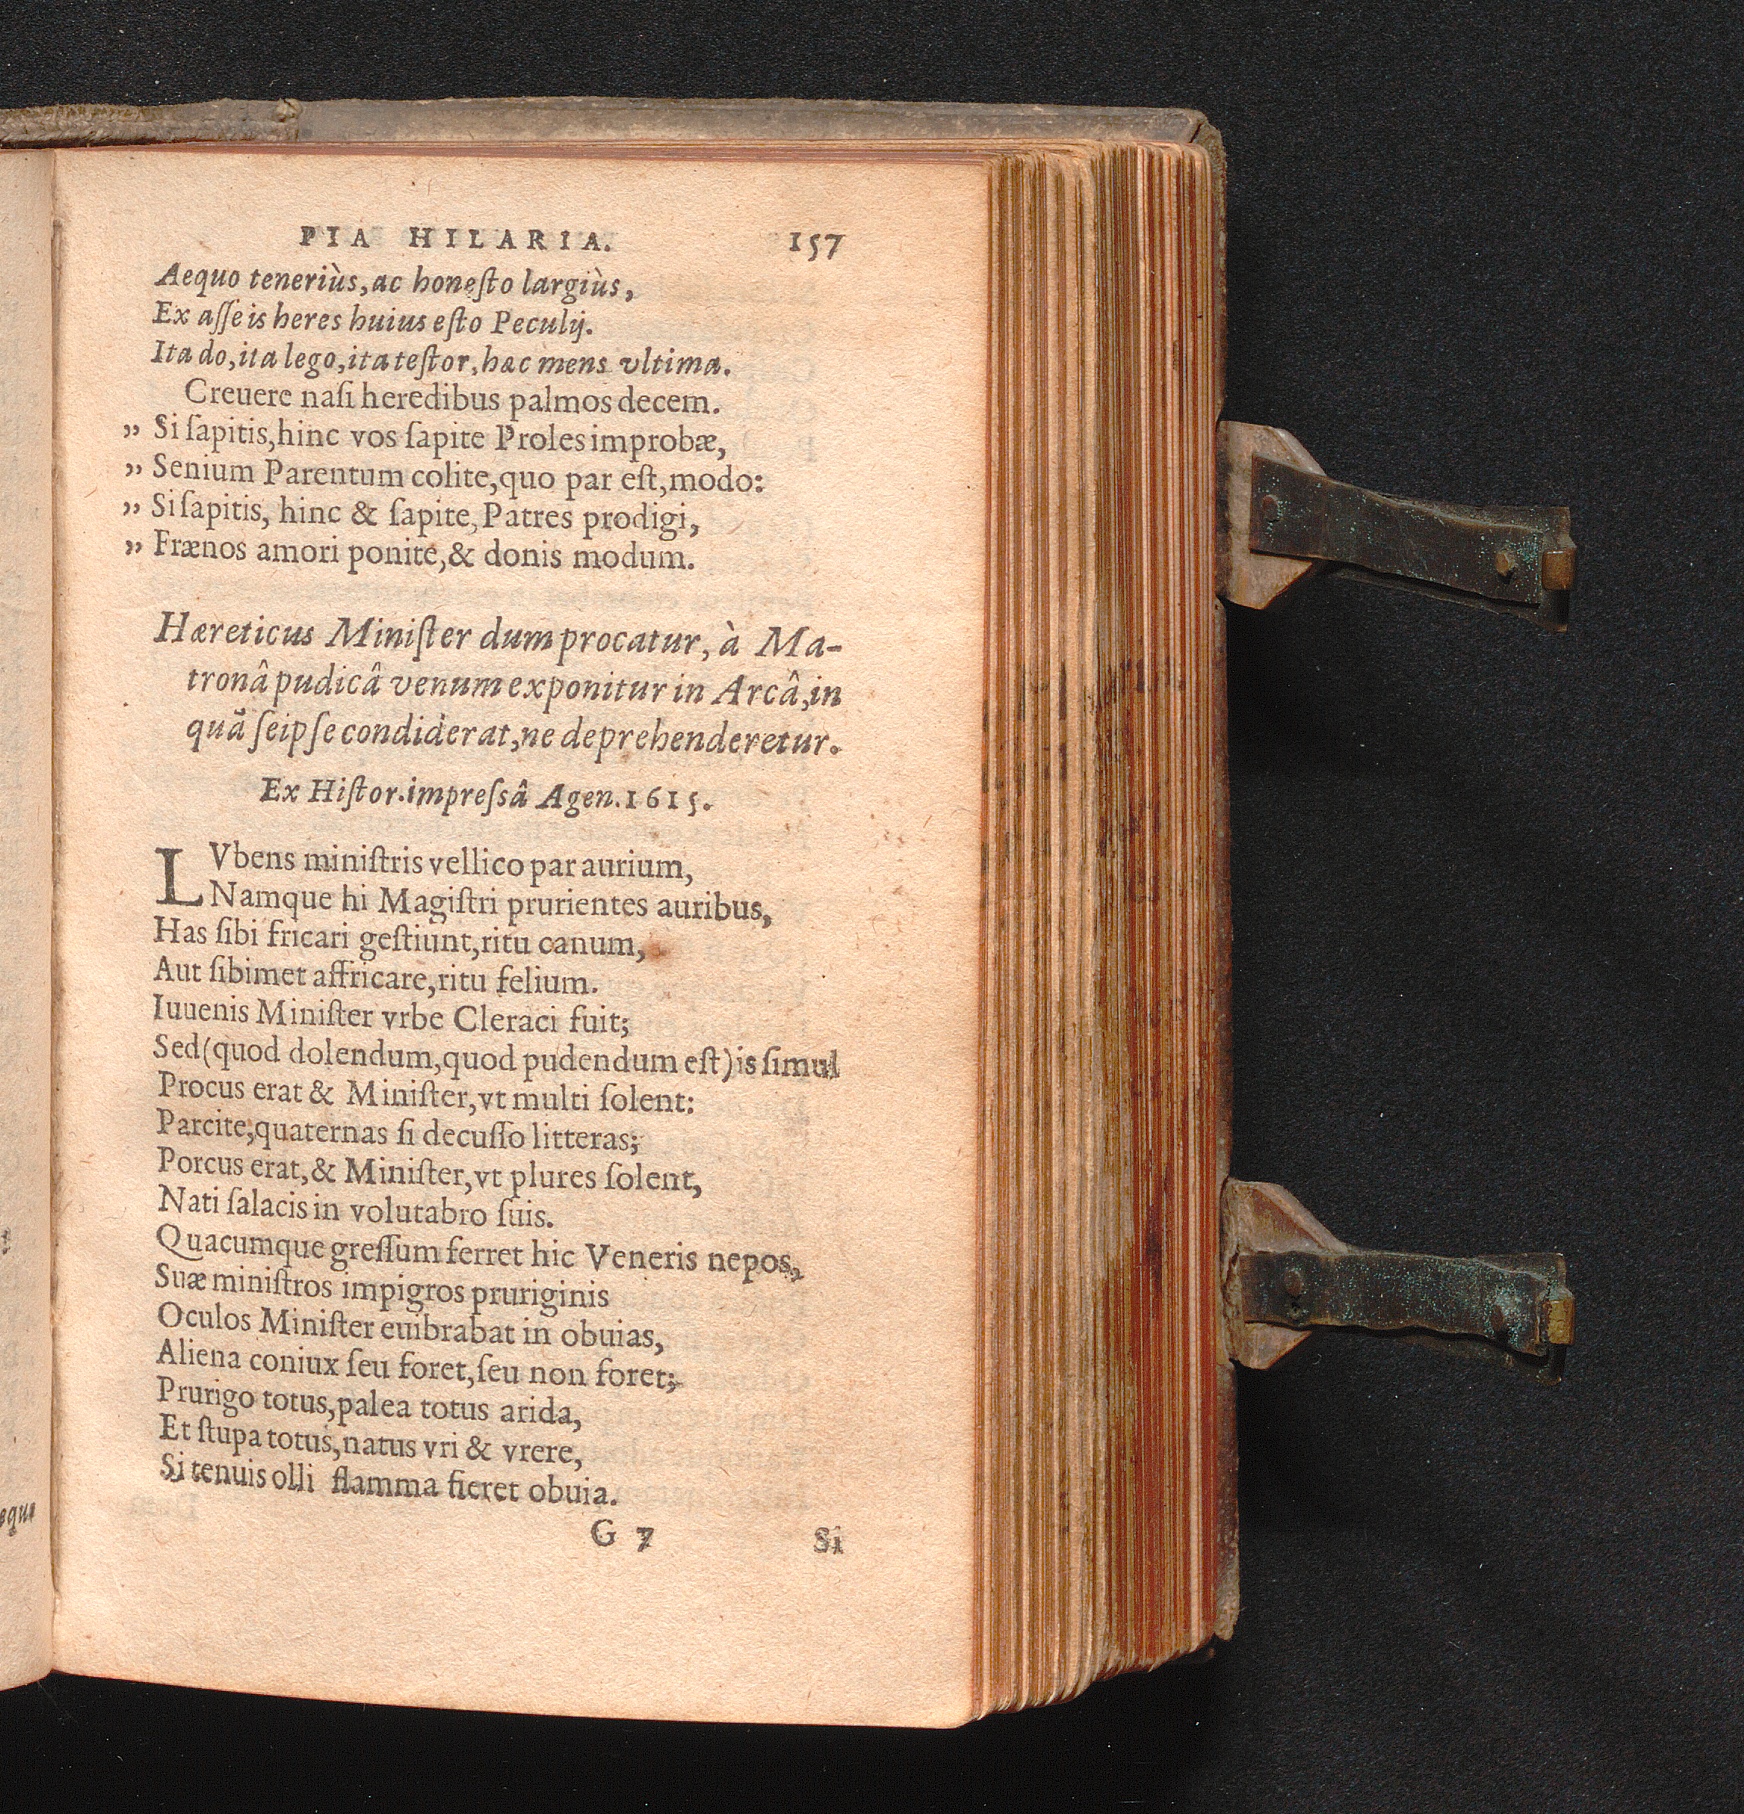 PIA HILARIA. 157
Aequo teneriùs, ac honeſto largiùs,
Ex aſſe is heres huius eſto Peculij.
Ita do, ita lego, ita teſtor, hæc mens vltima.
Creuere naſi heredibus palmos decem.
„ Si ſapitis, hinc vos ſapite Proles improbæ,
„ Senium Parentum colite, quo par eſt, modo:
„ Si ſapitis, hinc & ſapite, Patres prodigi,
„ Frænos amori ponite, & donis modum.
Hæreticus Miniſter dum procatur, à Ma-
tronâ pudicâ venum exponitur in Arcâ, in
quã ſeipſe condiderat, ne deprehenderetur.
Ex Hiſtor. impreſsâ Agen. 1615.
LVbens miniſtris vellico par aurium,
Namque hi Magiſtri prurientes auribus,
Has ſibi fricari geſtiunt, ritu canum,
Aut ſibimet affricare, ritu felium.
Iuuenis Miniſter vrbe Cleraci fuit;
Sed (quod dolendum, quod pudendum eſt) is ſimul
Procus erat & Miniſter, vt multi ſolent:
Parcite, quaternas ſi decuſſo litteras;
Porcus erat, & Miniſter, vt plures ſolent,
Nati ſalacis in volutabro ſuis.
Quacumque greſſum ferret hic Veneris nepos,
Suæ miniſtros impigros pruriginis
Oculos Miniſter euibrabat in obuias,
Aliena coniux ſeu foret, ſeu non foret;
Prurigo totus, palea totus arida,
Et ſtupa totus, natus vri & vrere,
Si tenuis olli flamma fieret obuia.
G 7 Si